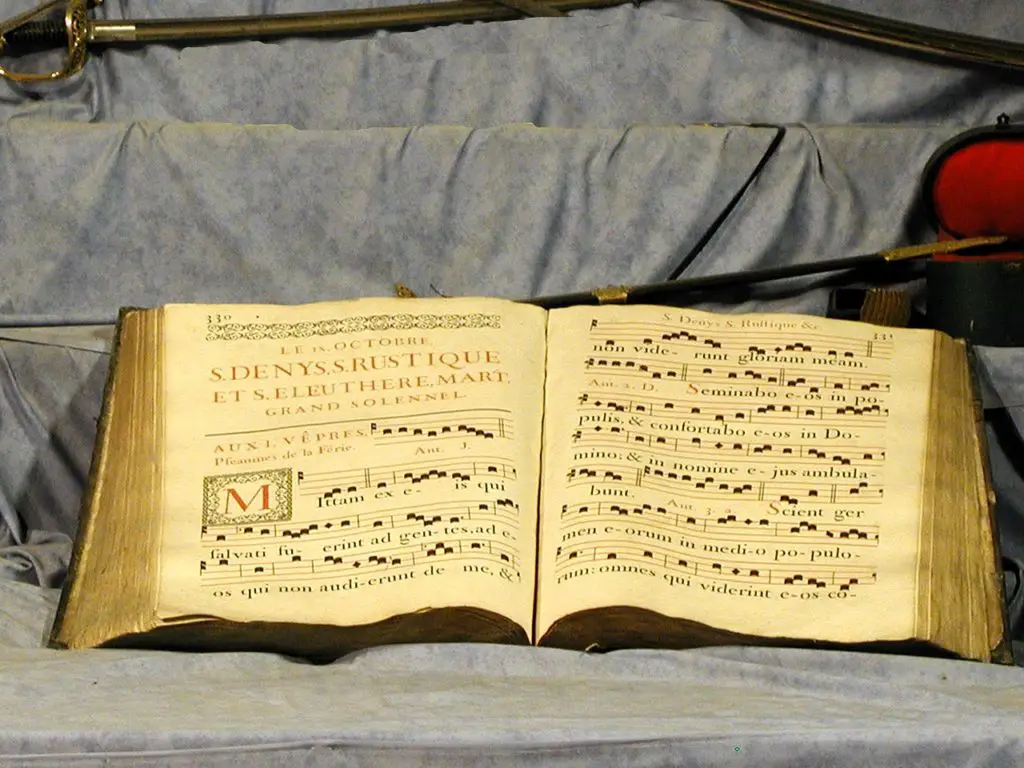 330
LE IX. OCTOBRE,
S. DENYS, S. RUSTIQUE
ET S. ELEUTHERE, MART.
GRAND SOLENNEL.
AUX I. VÊPRES,
Pseaumes de la Férie. Ant. J.
MIttam ex e- is qui
salvati fu- erint ad gen-tes, ad e-
os qui non audi-erunt de me, &
S. Denys S. Rustique &c. 331
non vide- runt gloriam meam.
Ant. 2. D. Seminabo e-os in po-
pulis, & confortabo e-os in Do-
mino: & in nomine e-jus ambula-
bunt. Ant. 3. a. Scient ger
men e-orum in medi-o po-pulo-
rum: omnes qui viderint e-os co-